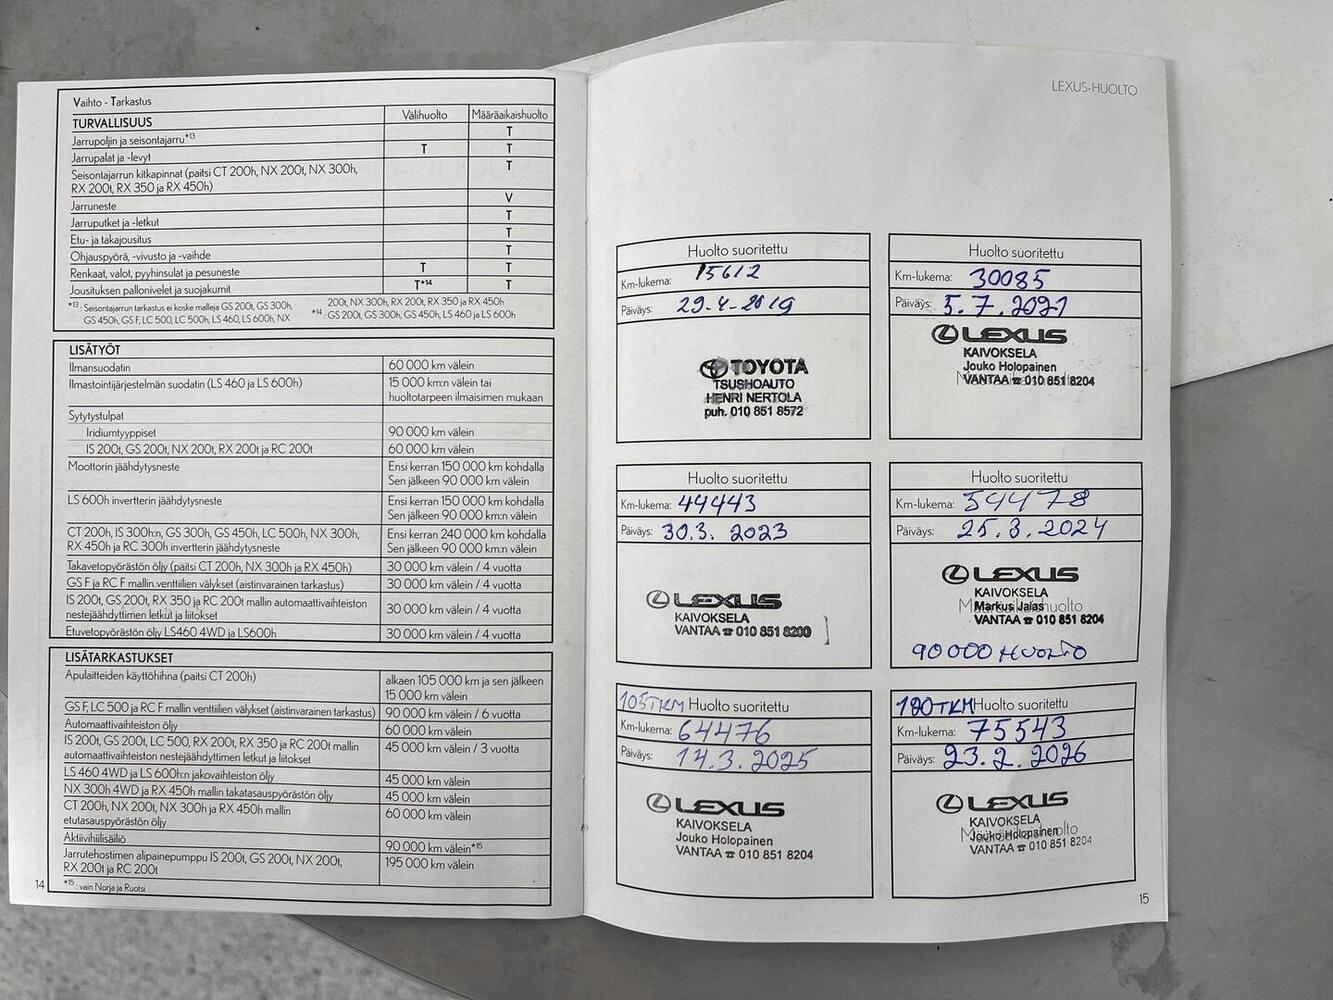 Vaihto - Tarkastus
TURVALLISUUS Välihuolto Määräaikaishuolto
Jarrupoljin ja seisontajarru*13 T
Jarrupalat ja -levyt T T
Seisontajarrun kitkapinnat (paitsi CT 200h, NX 200t, NX 300h, T
RX 200t, RX 350 ja RX 450h)
Jarruneste V
Jarruputket ja -letkut T
Etu- ja takajousitus T
Ohjauspyörä, -vivusto ja -vaihde T
Renkaat, valot, pyyhinsulat ja pesuneste T T
Jousituksen pallonivelet ja suojakumit T*14 T
*13 : Seisontajarrun tarkastus ei koske malleja GS 200t, GS 300h,
GS 450h, GS F, LC 500, LC 500h, LS 460, LS 600h, NX
200t, NX 300h, RX 200t, RX 350 ja RX 450h
*14 : GS 200t, GS 300h, GS 450h, LS 460 ja LS 600h
LISÄTYÖT
Ilmansuodatin 60 000 km välein
Ilmastointijärjestelmän suodatin (LS 460 ja LS 600h) 15 000 km:n välein tai
huoltotarpeen ilmaisimen mukaan
Sytytystulpat
Iridiumtyyppiset 90 000 km välein
IS 200t, GS 200t, NX 200t, RX 200t ja RC 200t 60 000 km välein
Moottorin jäähdytysneste Ensi kerran 150 000 km kohdalla
Sen jälkeen 90 000 km välein
LS 600h invertterin jäähdytysneste Ensi kerran 150 000 km kohdalla
Sen jälkeen 90 000 km:n välein
CT 200h, IS 300h:n, GS 300h, GS 450h, LC 500h, NX 300h, Ensi kerran 240 000 km kohdalla
RX 450h ja RC 300h invertterin jäähdytysneste Sen jälkeen 90 000 km:n välein
Takavetopyörästön öljy (paitsi CT 200h, NX 300h ja RX 450h) 30 000 km välein / 4 vuotta
GS F ja RC F mallin venttiilien välykset (aistinvarainen tarkastus) 30 000 km välein / 4 vuotta
IS 200t, GS 200t, RX 350 ja RC 200t mallin automaattivaihteiston 30 000 km välein / 4 vuotta
nestejäähdyttimen letkut ja liitokset
Etuvetopyörästön öljy LS460 4WD ja LS600h 30 000 km välein / 4 vuotta
LISÄTARKASTUKSET
Apulaitteiden käyttöhihna (paitsi CT 200h) alkaen 105 000 km ja sen jälkeen
15 000 km välein
GS F, LC 500 ja RC F mallin venttiilien välykset (aistinvarainen tarkastus) 90 000 km välein / 6 vuotta
Automaattivaihteiston öljy 60 000 km välein
IS 200t, GS 200t, LC 500, RX 200t, RX 350 ja RC 200t mallin 45 000 km välein / 3 vuotta
automaattivaihteiston nestejäähdyttimen letkut ja liitokset
LS 460 4WD ja LS 600h:n jakovaihteiston öljy 45 000 km välein
NX 300h 4WD ja RX 450h mallin takatasauspyörästön öljy 45 000 km välein
CT 200h, NX 200t, NX 300h ja RX 450h mallin 60 000 km välein
etutasauspyörästön öljy
Aktiivihiilisäiliö 90 000 km välein*15
Jarrutehostimen alipainepumppu IS 200t, GS 200t, NX 200t, 195 000 km välein
RX 200t ja RC 200t
*15 : vain Norja ja Ruotsi
14
LEXUS-HUOLTO
Huolto suoritettu
Km-lukema: 15612
Päiväys: 29.4-2019
TOYOTA
TSUSHOAUTO
HENRI NERTOLA
puh. 010 851 8572
Huolto suoritettu
Km-lukema: 30085
Päiväys: 5.7.2021
LEXUS
KAIVOKSELA
Jouko Holopainen
VANTAA ☎ 010 851 8204
Huolto suoritettu
Km-lukema: 44443
Päiväys: 30.3.2023
LEXUS
KAIVOKSELA
VANTAA ☎ 010 851 8200
Huolto suoritettu
Km-lukema: 54478
Päiväys: 25.3.2024
LEXUS
KAIVOKSELA
Markus Jalas
VANTAA ☎ 010 851 8204
90000 HUOLTO
105TKM Huolto suoritettu
Km-lukema: 64476
Päiväys: 14.3.2025
LEXUS
KAIVOKSELA
Jouko Holopainen
VANTAA ☎ 010 851 8204
120TKM Huolto suoritettu
Km-lukema: 75543
Päiväys: 23.2.2026
LEXUS
KAIVOKSELA
Jouko Holopainen
VANTAA ☎ 010 851 8204
15